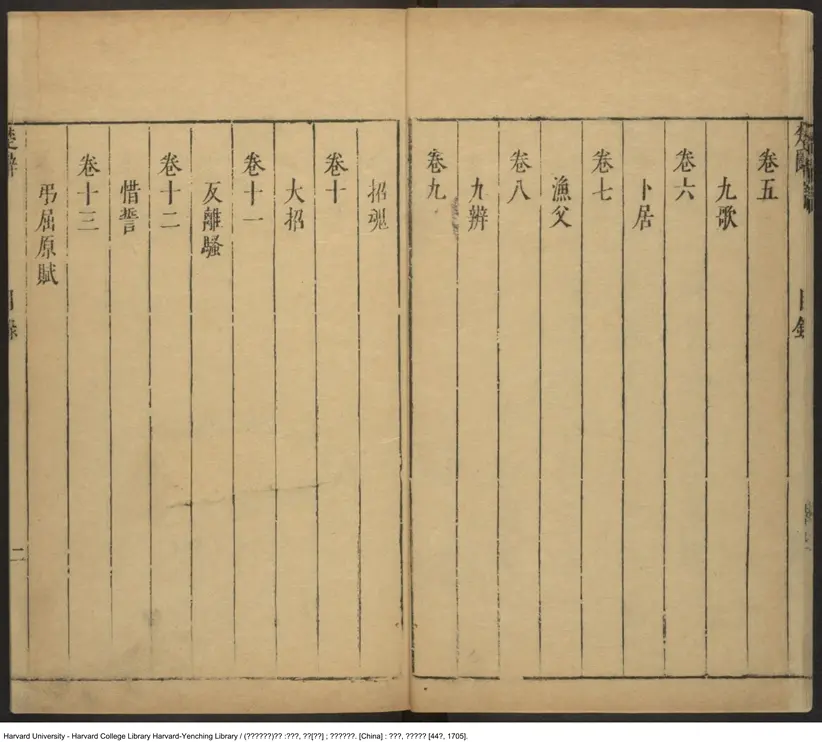 卷五
九歌
卷六
卜居
卷七
漁父
卷八
九辨
卷九
招魂
卷十
大招
卷十一
反離騷
卷十二
惜誓
卷十三
弔屈原賦
目錄
二
Harvard University - Harvard College Library Harvard-Yenching Library / (??????)?? :???, ??[??] ; ??????. [China] : ???, ????? [44?, 1705].